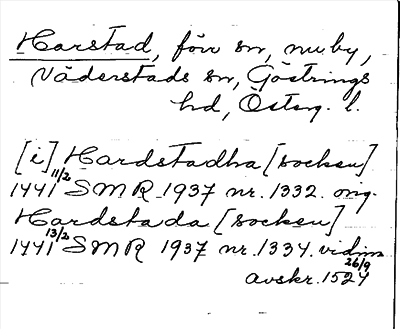 Harstad, förr sn, nu by,
Väderstads sn, Göstrings
hd, Österg. l.
[i] Hardstadha [socken]
1441 11/2 SMR 1937 nr. 1332. orig.
Hardstada [socken]
1441 13/2 SMR 1937 nr. 1334. vidim.
avskr. 1524 26/9